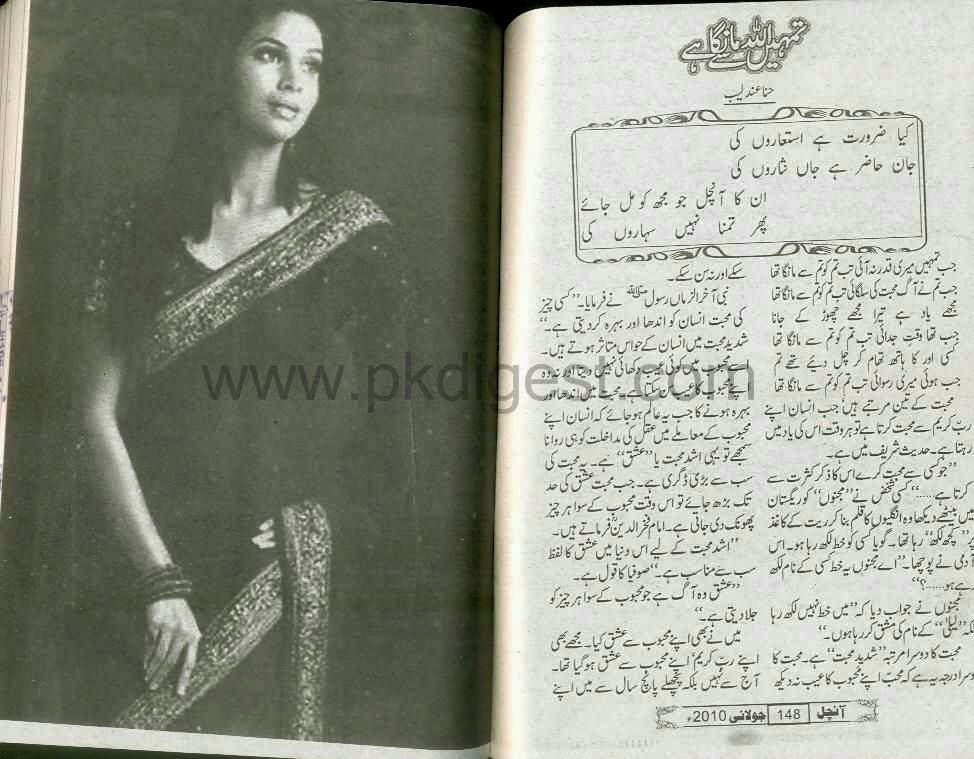 تمہیں اللہ سے مانگا ہے
حنا عندلیب
کیا ضرورت ہے استعاروں کی
جان حاضر ہے جاں نثاروں کی
ان کا آنچل جو مجھ کو مل جائے
پھر تمنا نہیں سہاروں کی
جب تمہیں میری قدر نہ آئی تب تم کو تم سے مانگا تھا
جب تم نے آگ محبت کی سلگائی تب تم کو تم سے مانگا تھا
مجھے یاد ہے تیرا مجھے چھوڑ کے جانا
جب تھا وقتِ جدائی تب تم کو تم سے مانگا تھا
کسی اور کا ہاتھ تھام کر چل دیئے تھے تم
جب ہوئی میری رسوائی تب تم کو تم سے مانگا تھا
محبت کے تین مرتبے ہیں' جب انسان اپنے
ربّ کریم سے محبت کرتا ہے تو ہر وقت اس کی یاد میں
رہتا ہے۔ حدیث شریف میں ہے۔
”جو کسی سے محبت کرے اس کا ذکر کثرت سے
کرتا ہے.....“ کسی شخص نے ”مجنوں“ کو ریگستان
میں بیٹھے دیکھا وہ انگلیوں کا قلم بنا کر ریت کے کاغذ
پر ”کچھ لکھ“ رہا تھا۔ گویا کسی کو خط لکھ رہا ہو۔ اس
آدمی نے پوچھا۔ ”اے مجنوں یہ خط کسی کے نام لکھ
رہے ہو.....؟“
مجنوں نے جواب دیا کہ ”میں خط نہیں لکھ رہا
بلکہ ”لیلیٰ“ کے نام کی مشق کر رہا ہوں۔“
محبت کا دوسرا مرتبہ ”شدید محبت“ ہے۔ محبت کا
دوسرا درجہ یہ ہے کہ محبّ اپنے محبوب کا عیب نہ دیکھ
سکے اور نہ سن سکے۔
نبی آخر الزماں رسول ﷺ نے فرمایا۔ ”کسی چیز
کی محبت انسان کو اندھا اور بہرہ کر دیتی ہے۔“
شدید محبت میں انسان کے حواس متاثر ہوتے ہیں۔
اسے محبوب میں کوئی عیب دکھائی نہیں دیتا اور نہ وہ
اپنے محبوب کا عیب سن سکتا ہے۔ محبت میں اندھا اور
بہرہ ہونے کا جب یہ عالم ہو جائے کہ انسان اپنے
محبوب کے معاملے میں عقل کی مداخلت کو ہی روا نا
سمجھے تو یہی اشد محبت یا ”عشق“ ہے۔ یہ محبت کی
سب سے بڑی ڈگری ہے۔ جب محبت عشق کی حد
تک بڑھ جائے تو اس وقت محبوب کے سوا ہر چیز
پھونک دی جاتی ہے۔ امام فخر الدینؒ فرماتے ہیں۔
”اشد محبت کے لیے اس دنیا میں عشق کا لفظ
سب سے مناسب ہے۔“ صوفیا کا قول ہے۔
”عشق وہ آگ ہے جو محبوب کے سوا ہر چیز کو
جلا دیتی ہے۔“
میں نے بھی اپنے محبوب سے عشق کیا۔ مجھے بھی
اپنے ربّ کریم' اپنے محبوب سے عشق ہو گیا تھا۔
آج سے نہیں بلکہ پچھلے پانچ سال سے میں اپنے
آنچل 148 جولائی 2010ء
www.pkdigest.com